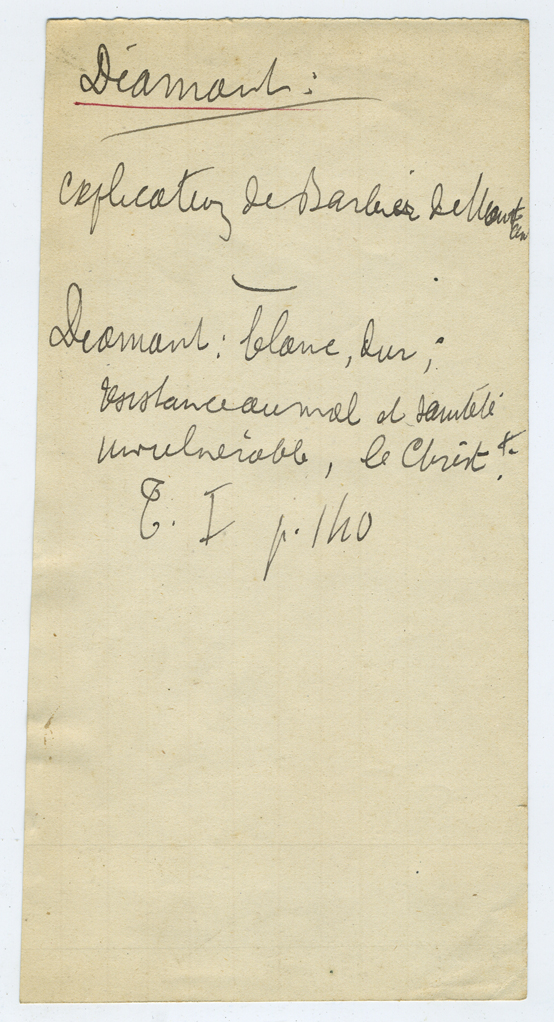 Diamant :
explication de Barbier de Montault
Diamant : blanc, dur,
résistance au mal et sainteté
invulnérable, le Christ
T. I p. 140